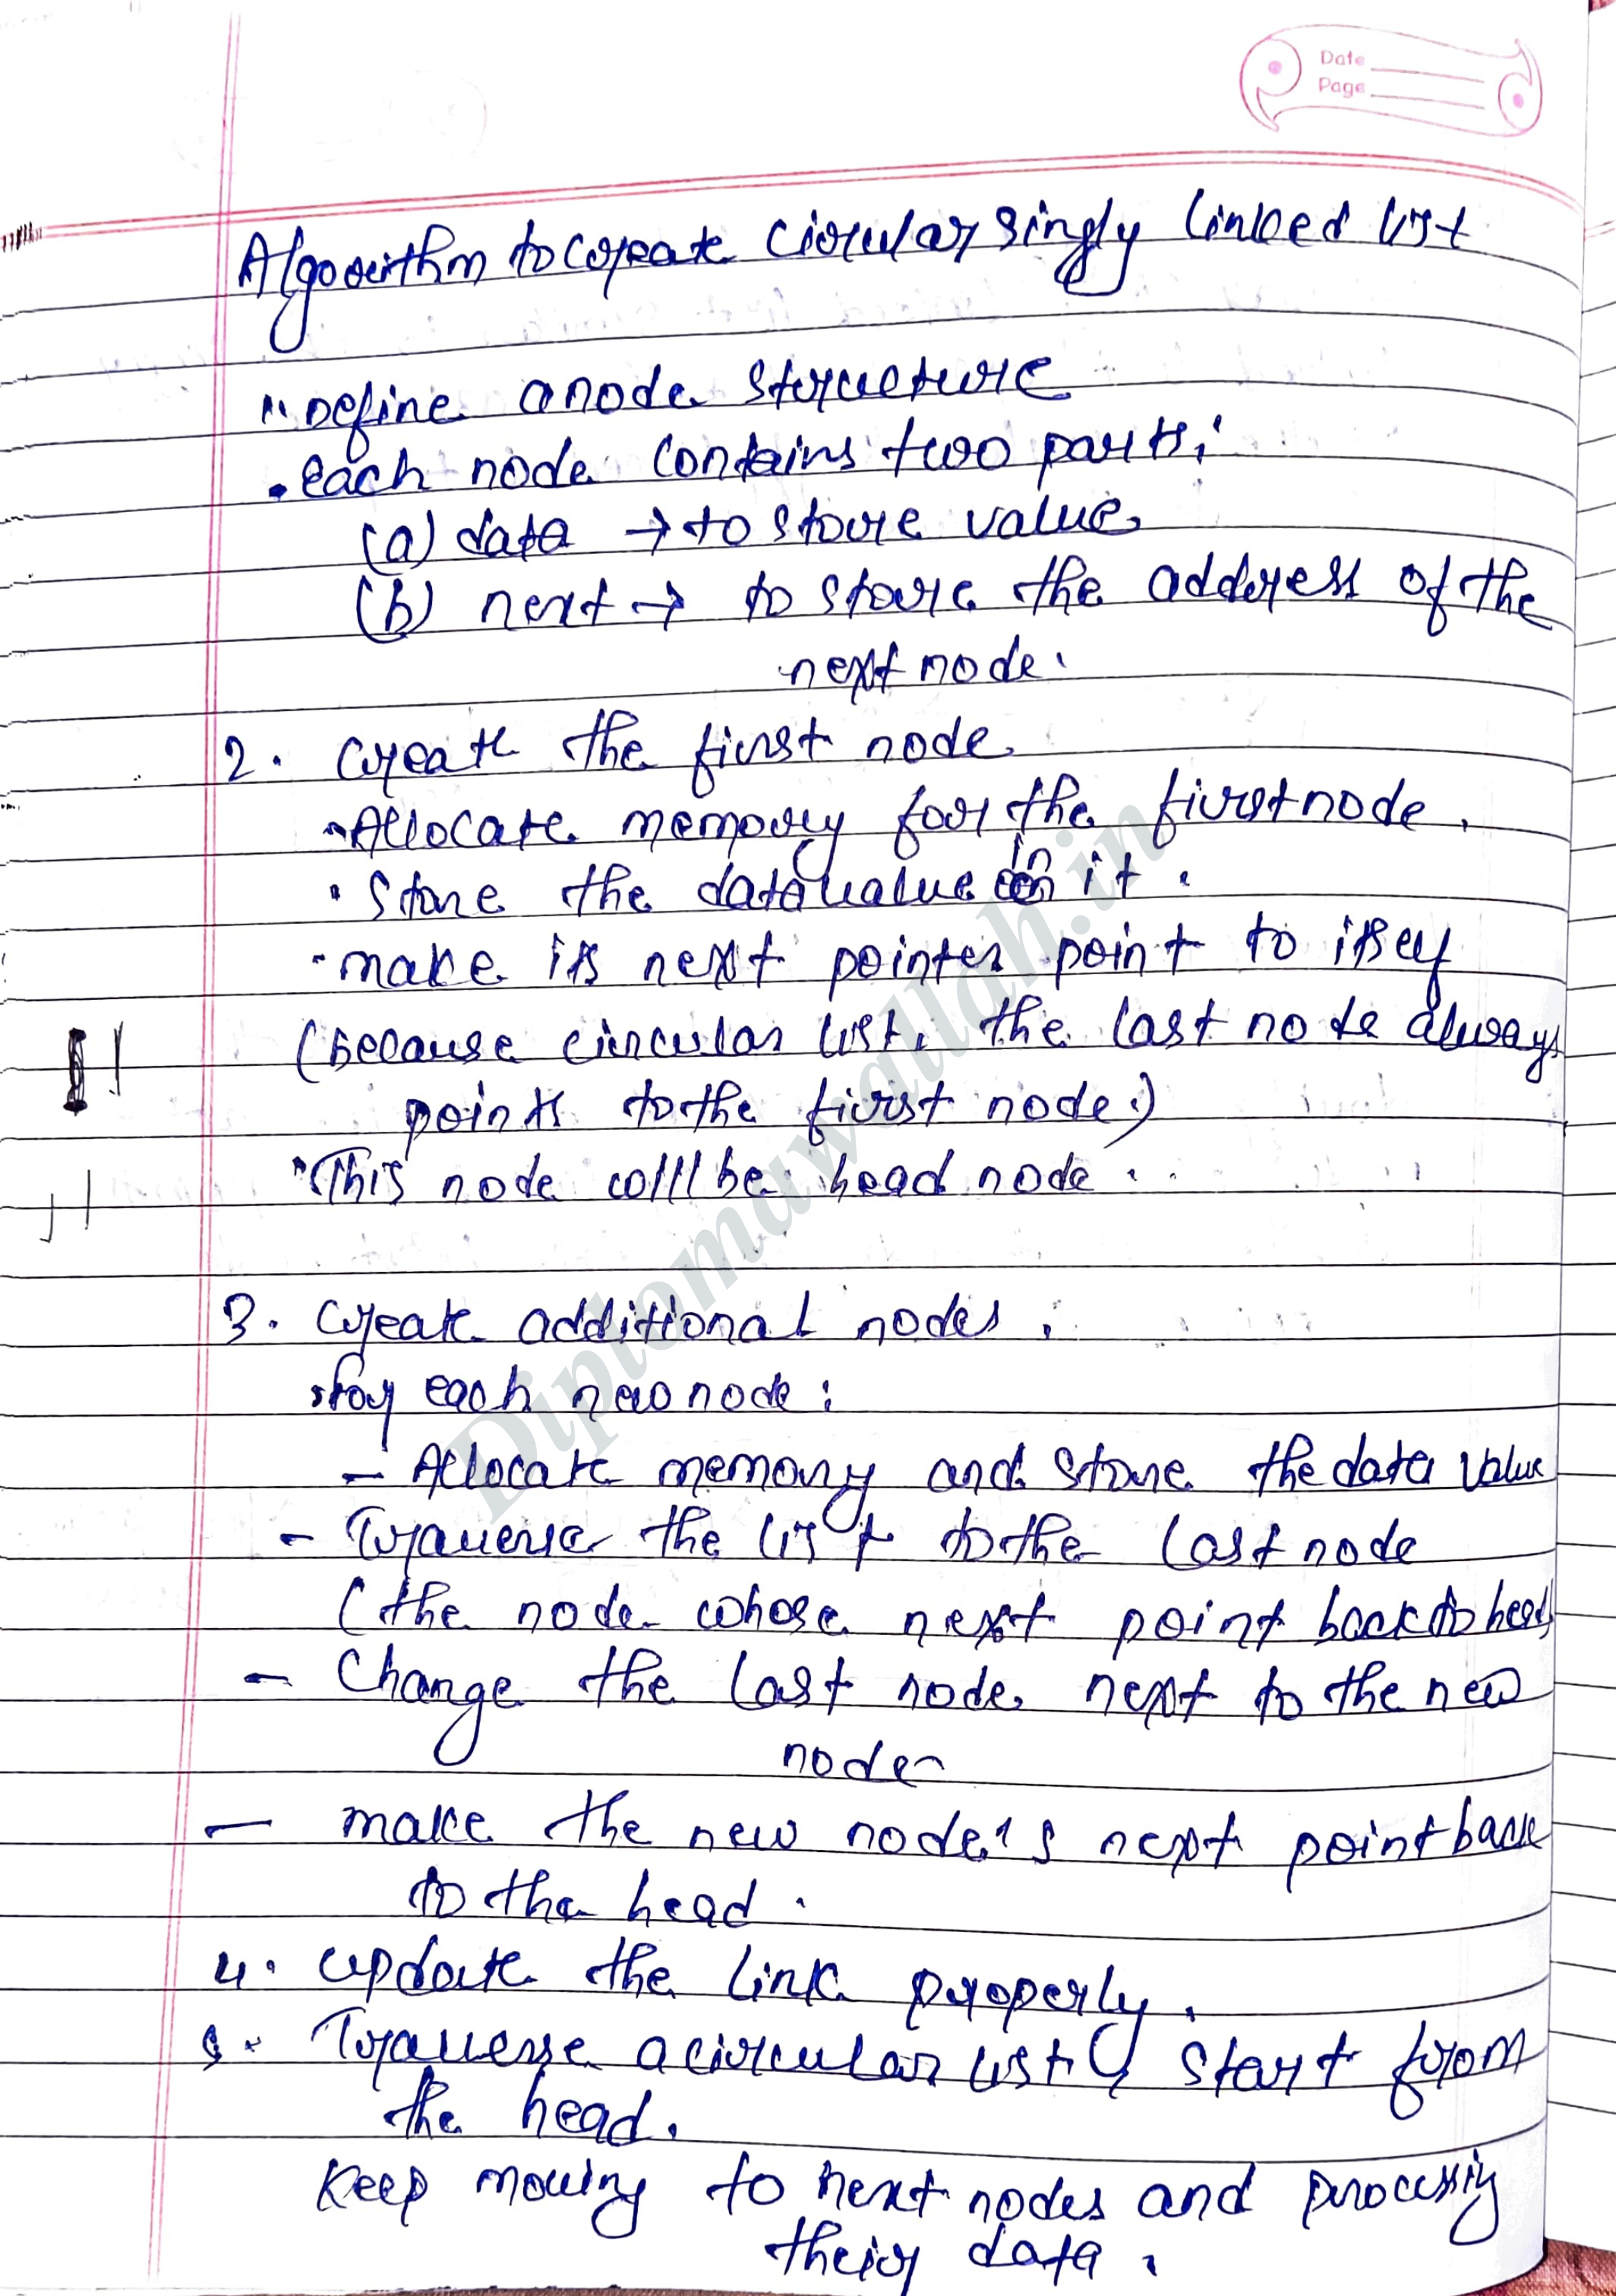 Date
Page
Algorithm to create circular singly linked list
1. Define a node structure
. each node contains two parts:
(a) data → to store value
(b) next → to store the address of the
next node.
2. create the first node
. Allocate memory for the first node.
. Store the data value in it.
. make its next pointer point to itself
(because circular list, the last node always
points to the first node.)
. This node will be head node.
3. create additional nodes.
. for each new node:
- Allocate memory and store the data value
- Traverse the list to the last node
(the node whose next point back to head)
- Change the last node next to the new
node
- make the new node's next point back
to the head.
4. update the link properly.
5. Traverse a circular list, start from
the head.
Keep moving to next nodes and processing
their data.
Diplomawallah.in